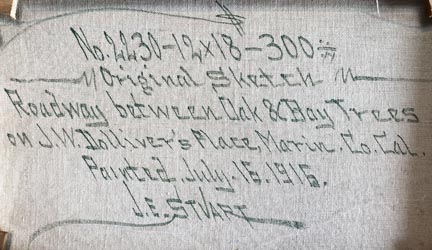 No. 2230-12x18-300
Original Sketch
Roadway between Oak & Bay Trees
on J.W. Dolliver's Place, Marin. Co. Cal.
Painted, July. 15. 1915.
J.E. STVART